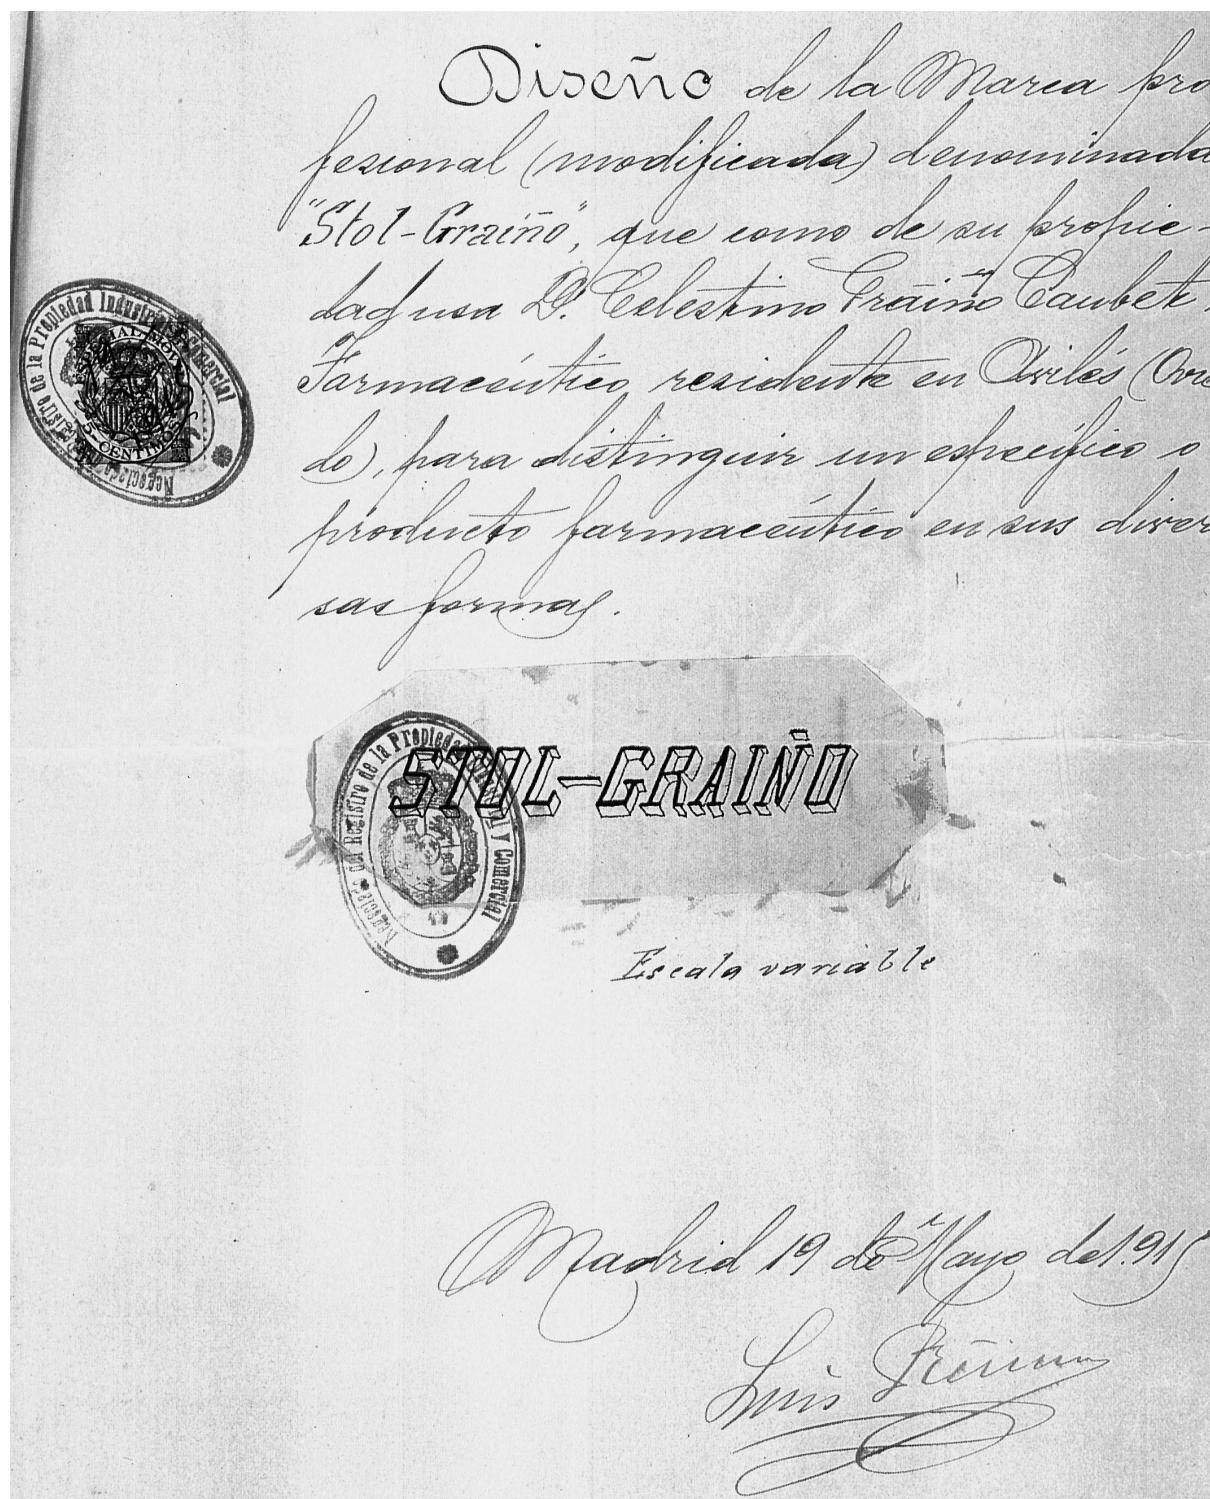 Diseño de la Marca pro
fesional (modificada) denominada
"Stol-Graiño", que como de su propie-
dad usa D. Celestino Graiño Caubet
Farmacéutico, residente en Avilés (Ovie
do), para distinguir un específico o
producto farmacéutico en sus diver
sas formas.
Negociado del Registro de la Propiedad Industrial y Comercial
ESPECIAL MOVIL
5 CENTIMOS
STOL-GRAIÑO
Negociado del Registro de la Propiedad Industrial y Comercial
Escala variable
Madrid 19 de Mayo de 1.915
Luis